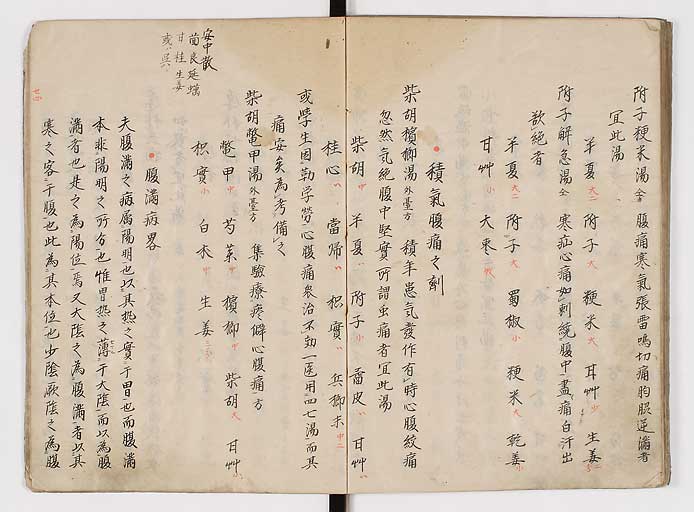 附子粳米湯 仝 腹痛寒氣張雷鳴切痛胸脇逆滿者
宜此湯
半夏 大二 附子 大 粳米 大 甘艸 少 生姜
附子解急湯 仝 寒疝心痛如刺繞腹中盡痛白汗出
欲絶者
半夏 大二 附子 大 蜀椒 小 粳米 大 乾姜 小
甘艸 小 大枣
積氣腹痛之劑
柴胡檳榔湯 外臺方 積年患气發作有時心腹絞痛
忽然气絶腹中堅實所謂虫痛者宜此湯
柴胡 中 半夏 附子 小 畨皮 甘艸
桂心 當帰 枳實 兵榔 中二
或學生因勤学勞心腹痛衆治不効一医用四七湯而其
痛安矣為考備之
柴胡鱉甲湯 外臺方 集驗療痃癖心腹痛方
鱉甲 中 芍薬 中 檳榔 中 柴胡 大 甘艸 小
枳實 小 白朮 中 生姜
安中散
茴良延蠣
甘桂生姜
或
腹滿病畧
夫腹滿之病属陽明也以其热之實于胃也而腹滿
本非陽明之所有也惟胃热之薄于太陰而以為腹
滿者也是之為陽位焉又大陰之為腹滿者以其
寒之客于腹也此為其本位也少陰厥陰之為腹